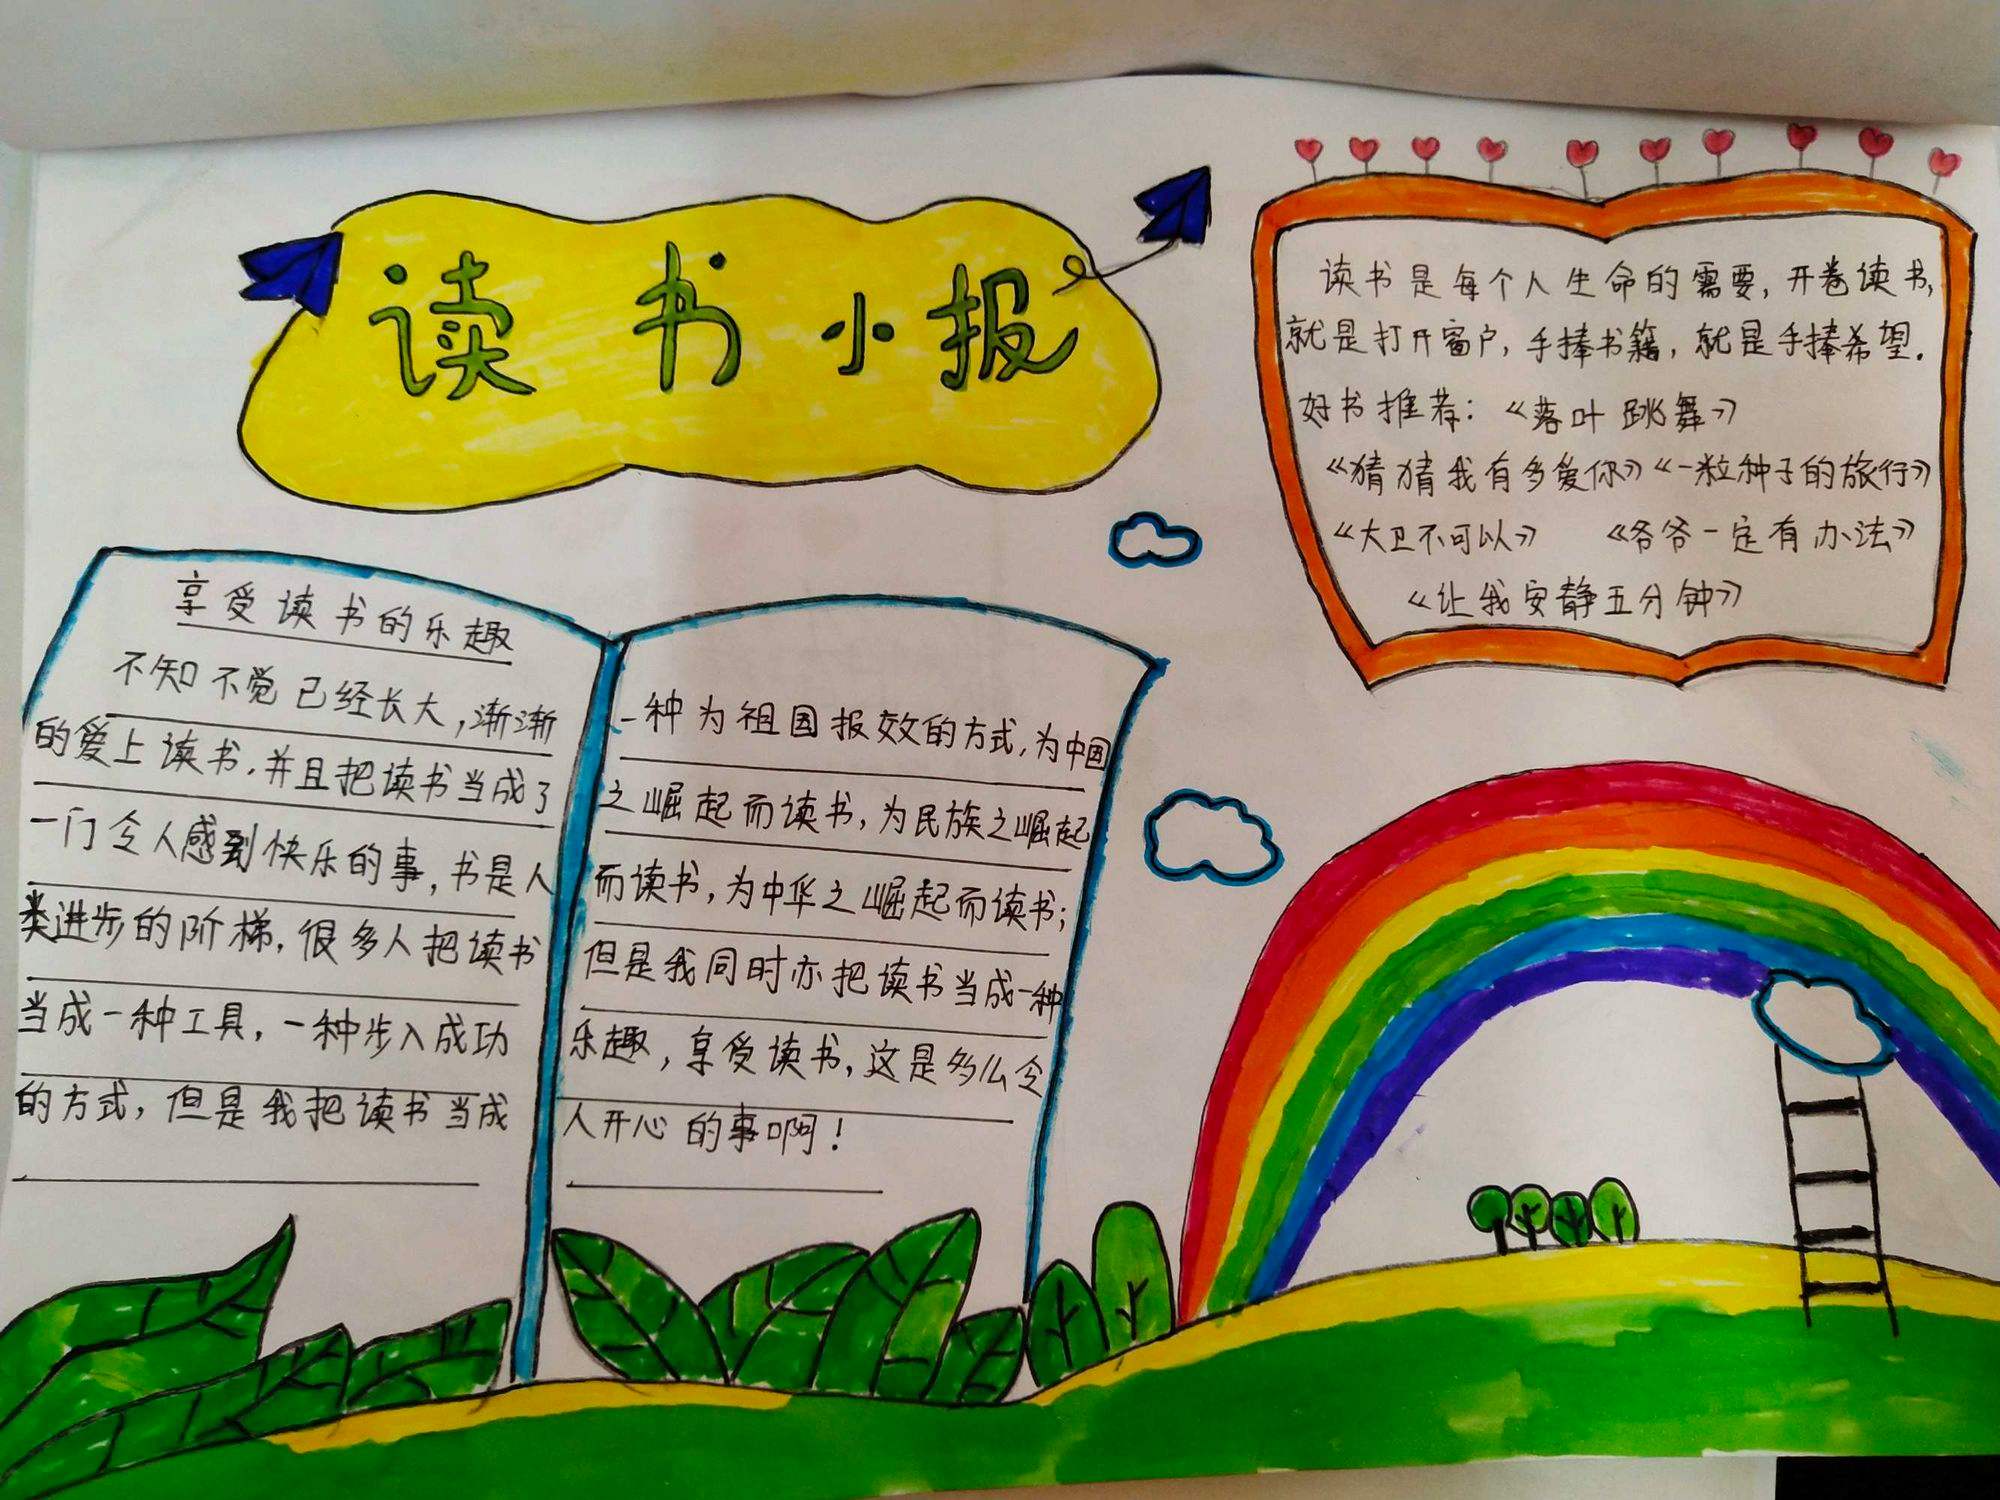 读书小报
享受读书的乐趣
不知不觉已经长大，渐渐
的爱上读书，并且把读书当成了
一门令人感到快乐的事，书是人
类进步的阶梯，很多人把读书
当成一种工具，一种步入成功
的方式，但是我把读书当成
一种为祖国报效的方式，为中国
之崛起而读书，为民族之崛起
而读书，为中华之崛起而读书；
但是我同时亦把读书当成一种
乐趣，享受读书，这是多么令
人开心的事啊！
读书是每个人生命的需要，开卷读书，
就是打开窗户，手捧书籍，就是手捧希望。
好书推荐：《落叶跳舞》
《猜猜我有多爱你》《一粒种子的旅行》
《大卫不可以》 《爷爷一定有办法》
《让我安静五分钟》